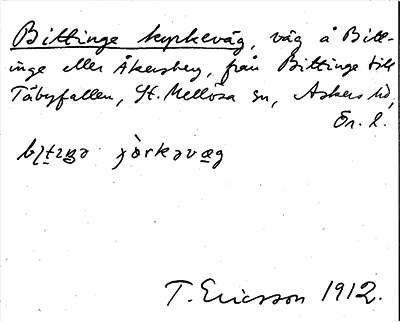 Bittinge kyrkeväg, väg å Bitt-
inge eller Åkersberg, från Bittinge till
Täbyfallen, St. Mellösa sn, Askers hd,
Ör. l.
T. Ericsson 1912.